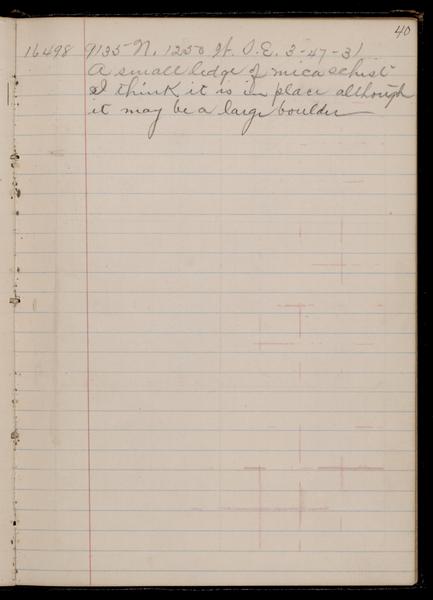 40
16498 9135 N. 1250 W. S.E. 3-47-31
A small ledge of mica schist
I think it is in place although
it may be a large boulder